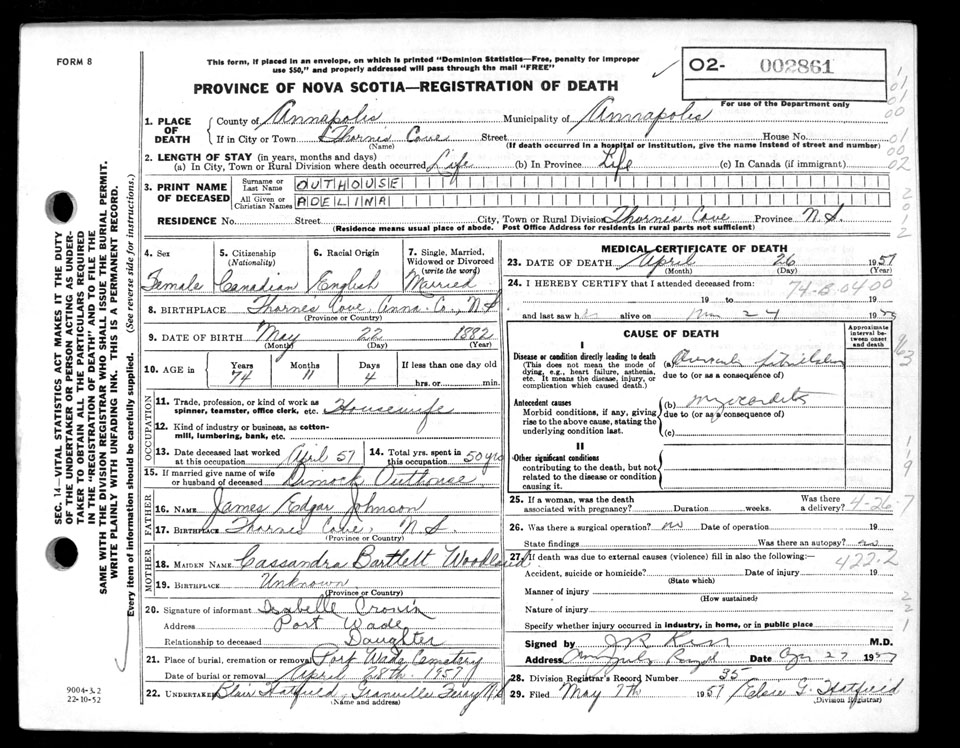 FORM 8
This form, if placed in an envelope, on which is printed "Dominion Statistics—Free, penalty for improper
use $50," and properly addressed will pass through the mail "FREE"
O2- 002861
For use of the Department only
PROVINCE OF NOVA SCOTIA—REGISTRATION OF DEATH
1. PLACE OF DEATH
County of Annapolis Municipality of Annapolis
If in City or Town Thorne's Cove Street House No.
(Name) (If death occurred in a hospital or institution, give the name instead of street and number)
2. LENGTH OF STAY (in years, months and days)
(a) In City, Town or Rural Division where death occurred Life (b) In Province Life (c) In Canada (if immigrant)
3. PRINT NAME OF DECEASED
Surname or Last Name OUTHOUSE
All Given or Christian Names ADELINA
RESIDENCE No. Street City, Town or Rural Division Thorne's Cove Province N.S.
(Residence means usual place of abode. Post Office Address for residents in rural parts not sufficient)
4. Sex
Female
5. Citizenship (Nationality)
Canadian
6. Racial Origin
English
7. Single, Married, Widowed or Divorced (write the word)
Married
8. BIRTHPLACE Thorne's Cove, Anna. Co., N.S
(Province or Country)
9. DATE OF BIRTH May 22 1882
(Month) (Day) (Year)
10. AGE in Years 74 Months 11 Days 4 If less than one day old
hrs. or min.
OCCUPATION
11. Trade, profession, or kind of work as
spinner, teamster, office clerk, etc. Housewife
12. Kind of industry or business, as cotton-
mill, lumbering, bank, etc.
13. Date deceased last worked at this occupation April 57
14. Total yrs. spent in this occupation 50 yrs
15. If married give name of wife
or husband of deceased Dimock Outhouse
FATHER
16. NAME James Edgar Johnson
17. BIRTHPLACE Thorne's Cove, N.S.
(Province or Country)
MOTHER
18. MAIDEN NAME Cassandra Bartlett Woodland
19. BIRTHPLACE Unknown
(Province or Country)
20. Signature of informant Isabelle Cronin
Address Port Wade
Relationship to deceased Daughter
21. Place of burial, cremation or removal Port Wade Cemetery
Date of burial or removal April 28th 1957
22. UNDERTAKER Blair Hatfield, Granville Ferry N.S
(Name and address)
MEDICAL CERTIFICATE OF DEATH
23. DATE OF DEATH April 26 1957
(Month) (Day) (Year)
24. I HEREBY CERTIFY that I attended deceased from:
74-B.0400
19 to 19
and last saw h alive on 24 19
CAUSE OF DEATH
Approximate interval between onset and death
I
Disease or condition directly leading to death
(This does not mean the mode of dying, e.g., heart failure, asthenia, etc. It means the disease, injury, or complication which caused death.)
(a) Auricular fibrillation
due to (or as a consequence of)
Antecedent causes
Morbid conditions, if any, giving rise to the above cause, stating the underlying condition last.
(b) Myocarditis
due to (or as a consequence of)
(c)
II
Other significant conditions
contributing to the death, but not related to the disease or condition causing it.
25. If a woman, was the death associated with pregnancy? Duration weeks. Was there a delivery?
4-26-7
26. Was there a surgical operation? no Date of operation 19
State findings Was there an autopsy? no
27. If death was due to external causes (violence) fill in also the following:
422.2
Accident, suicide or homicide? Date of injury 19
(State which)
Manner of injury
(How sustained)
Nature of injury
Specify whether injury occurred in industry, in home, or in public place
Signed by M.D.
Address Date Apr 27 1957
28. Division Registrar's Record Number 35
29. Filed May 7th 1957 Elsie G. Hatfield
(Division Registrar)
SEC. 14—VITAL STATISTICS ACT MAKES IT THE DUTY
OF THE UNDERTAKER OR PERSON ACTING AS UNDER-
TAKER TO OBTAIN ALL THE PARTICULARS REQUIRED
IN THE "REGISTRATION OF DEATH" AND TO FILE THE
SAME WITH THE DIVISION REGISTRAR WHO SHALL ISSUE THE BURIAL PERMIT.
WRITE PLAINLY WITH UNFADING INK. THIS IS A PERMANENT RECORD.
Every item of information should be carefully supplied. (See reverse side for instructions.)
9004-3.2
22-10-52